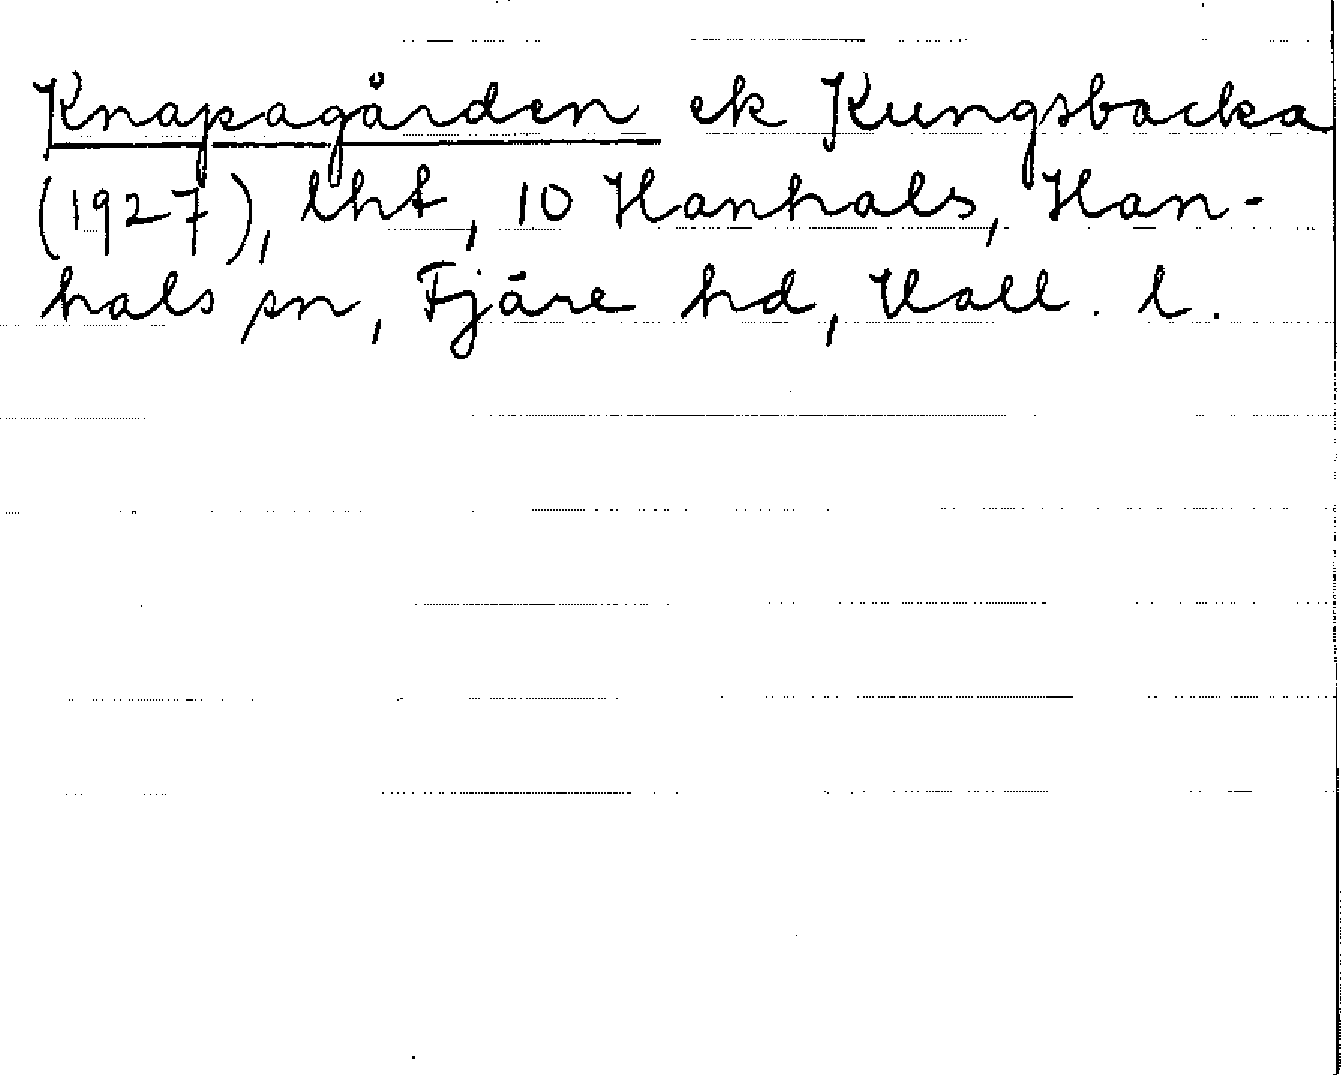 Knapagården ek Kungsbacka
(1927), lht, 10 Hanhals, Han-
hals sn, Fjäre hd, Hall. l.